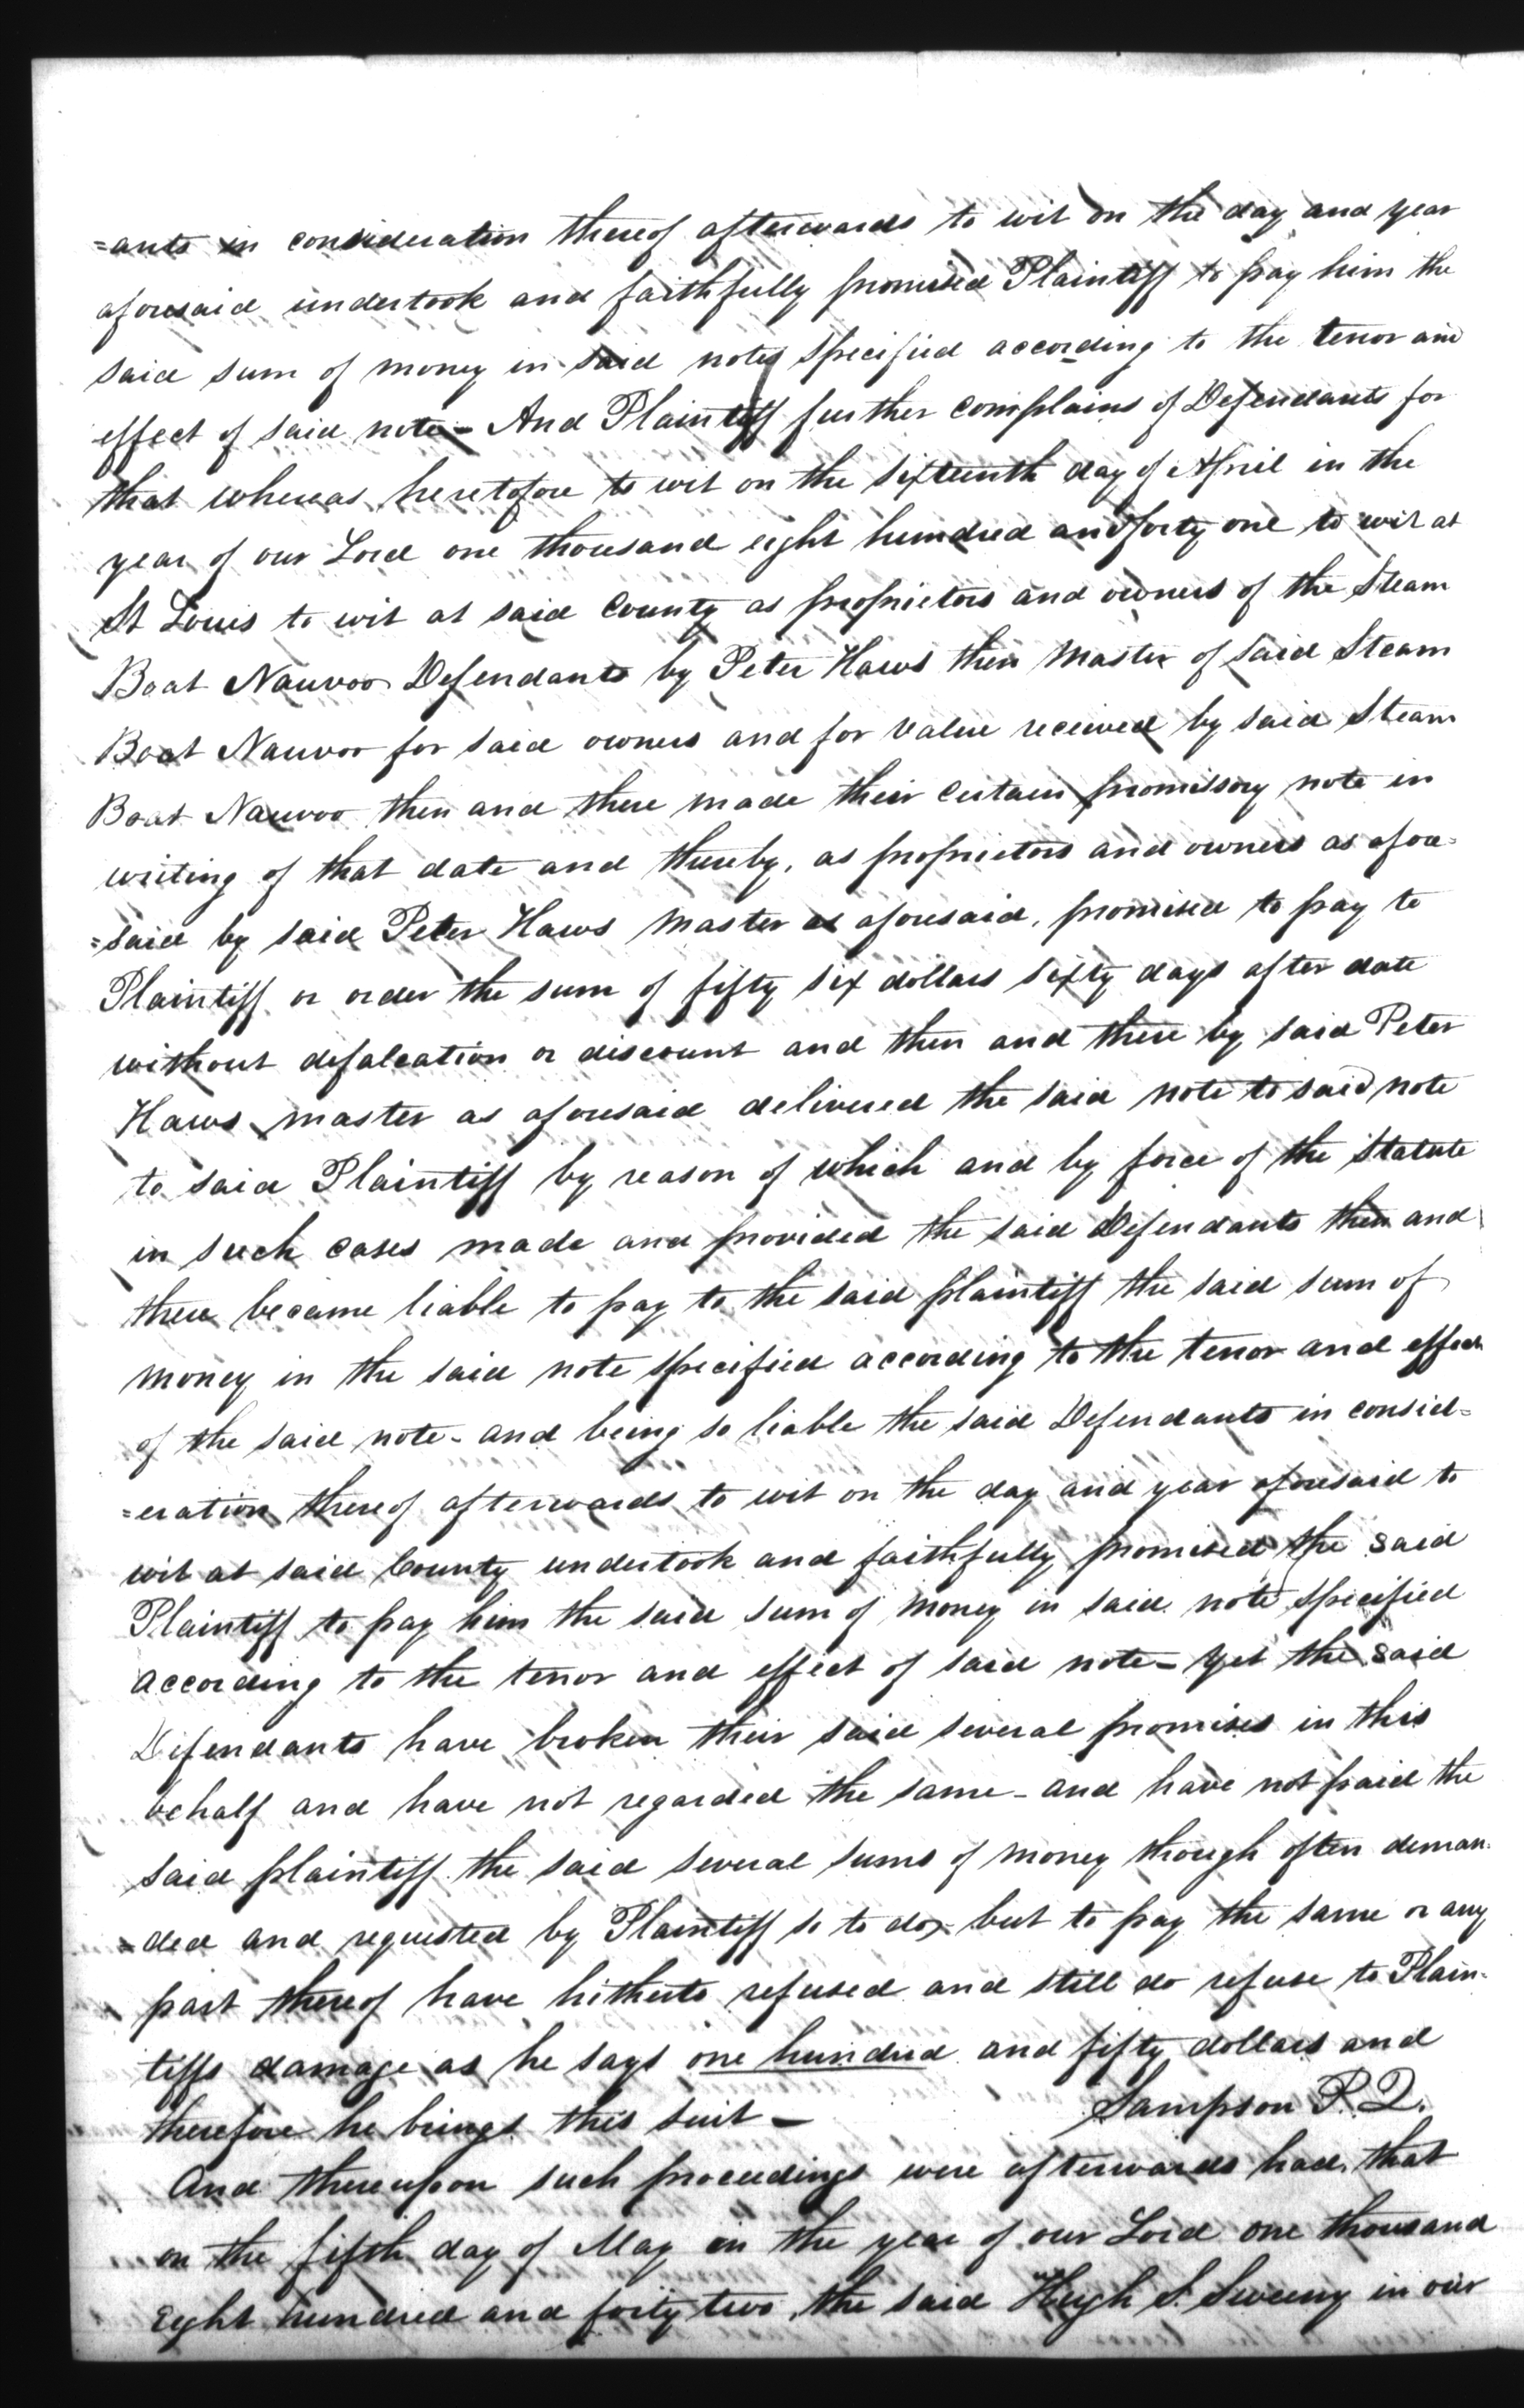 =ants in consideration thereof afterwards to wit on the day and year
aforesaid undertook and faithfully promised Plaintiff to pay him the
said sum of money in said notes specified according to the tenor and
effect of said note - And Plaintiff further complains of Defendants for
that whereas heretofore to wit on the sixteenth day of April in the
year of our Lord one thousand eight hundred and forty one to wit at
St Louis to wit at said County as proprietors and owners of the Steam
Boat Nauvoo Defendants by Peter Haws then Master of said Steam
Boat Nauvoo for said owners and for value received by said Steam
Boat Nauvoo then and there made their certain promissory note in
writing of that date and thereby, as proprietors and owners as afore=
=said by said Peter Haws Master as aforesaid, promised to pay to
Plaintiff or order the sum of fifty six dollars sixty days after date
without defalcation or discount and then and there by said Peter
Haws master as aforesaid delivered the said note to said note
to said Plaintiff by reason of which and by force of the Statute
in such cases made and provided the said Defendants then and
there became liable to pay to the said plaintiff the said sum of
money in the said note specified according to the tenor and effect
of the said note - and being so liable the said Defendants in consid=
=eration thereof afterwards to wit on the day and year aforesaid to
wit at said County undertook and faithfully promised the said
Plaintiff to pay him the said sum of money in said note specified
according to the tenor and effect of said note - yet the said
Defendants have broken their said several promises in this
behalf and have not regarded the same - and have not paid the
said plaintiff the said several sums of money though often deman-
-ded and requested by Plaintiff so to do, but to pay the same or any
part thereof have hitherto refused and still do refuse to Plain-
tiffs damage as he says one hundred and fifty dollars and
therefore he brings this suit - Sampson P. Q.
And thereupon such proceedings were afterwards had, that
on the fifth day of May in the year of our Lord one thousand
Eight hundred and forty two, the said Hugh S. Sweeny in our